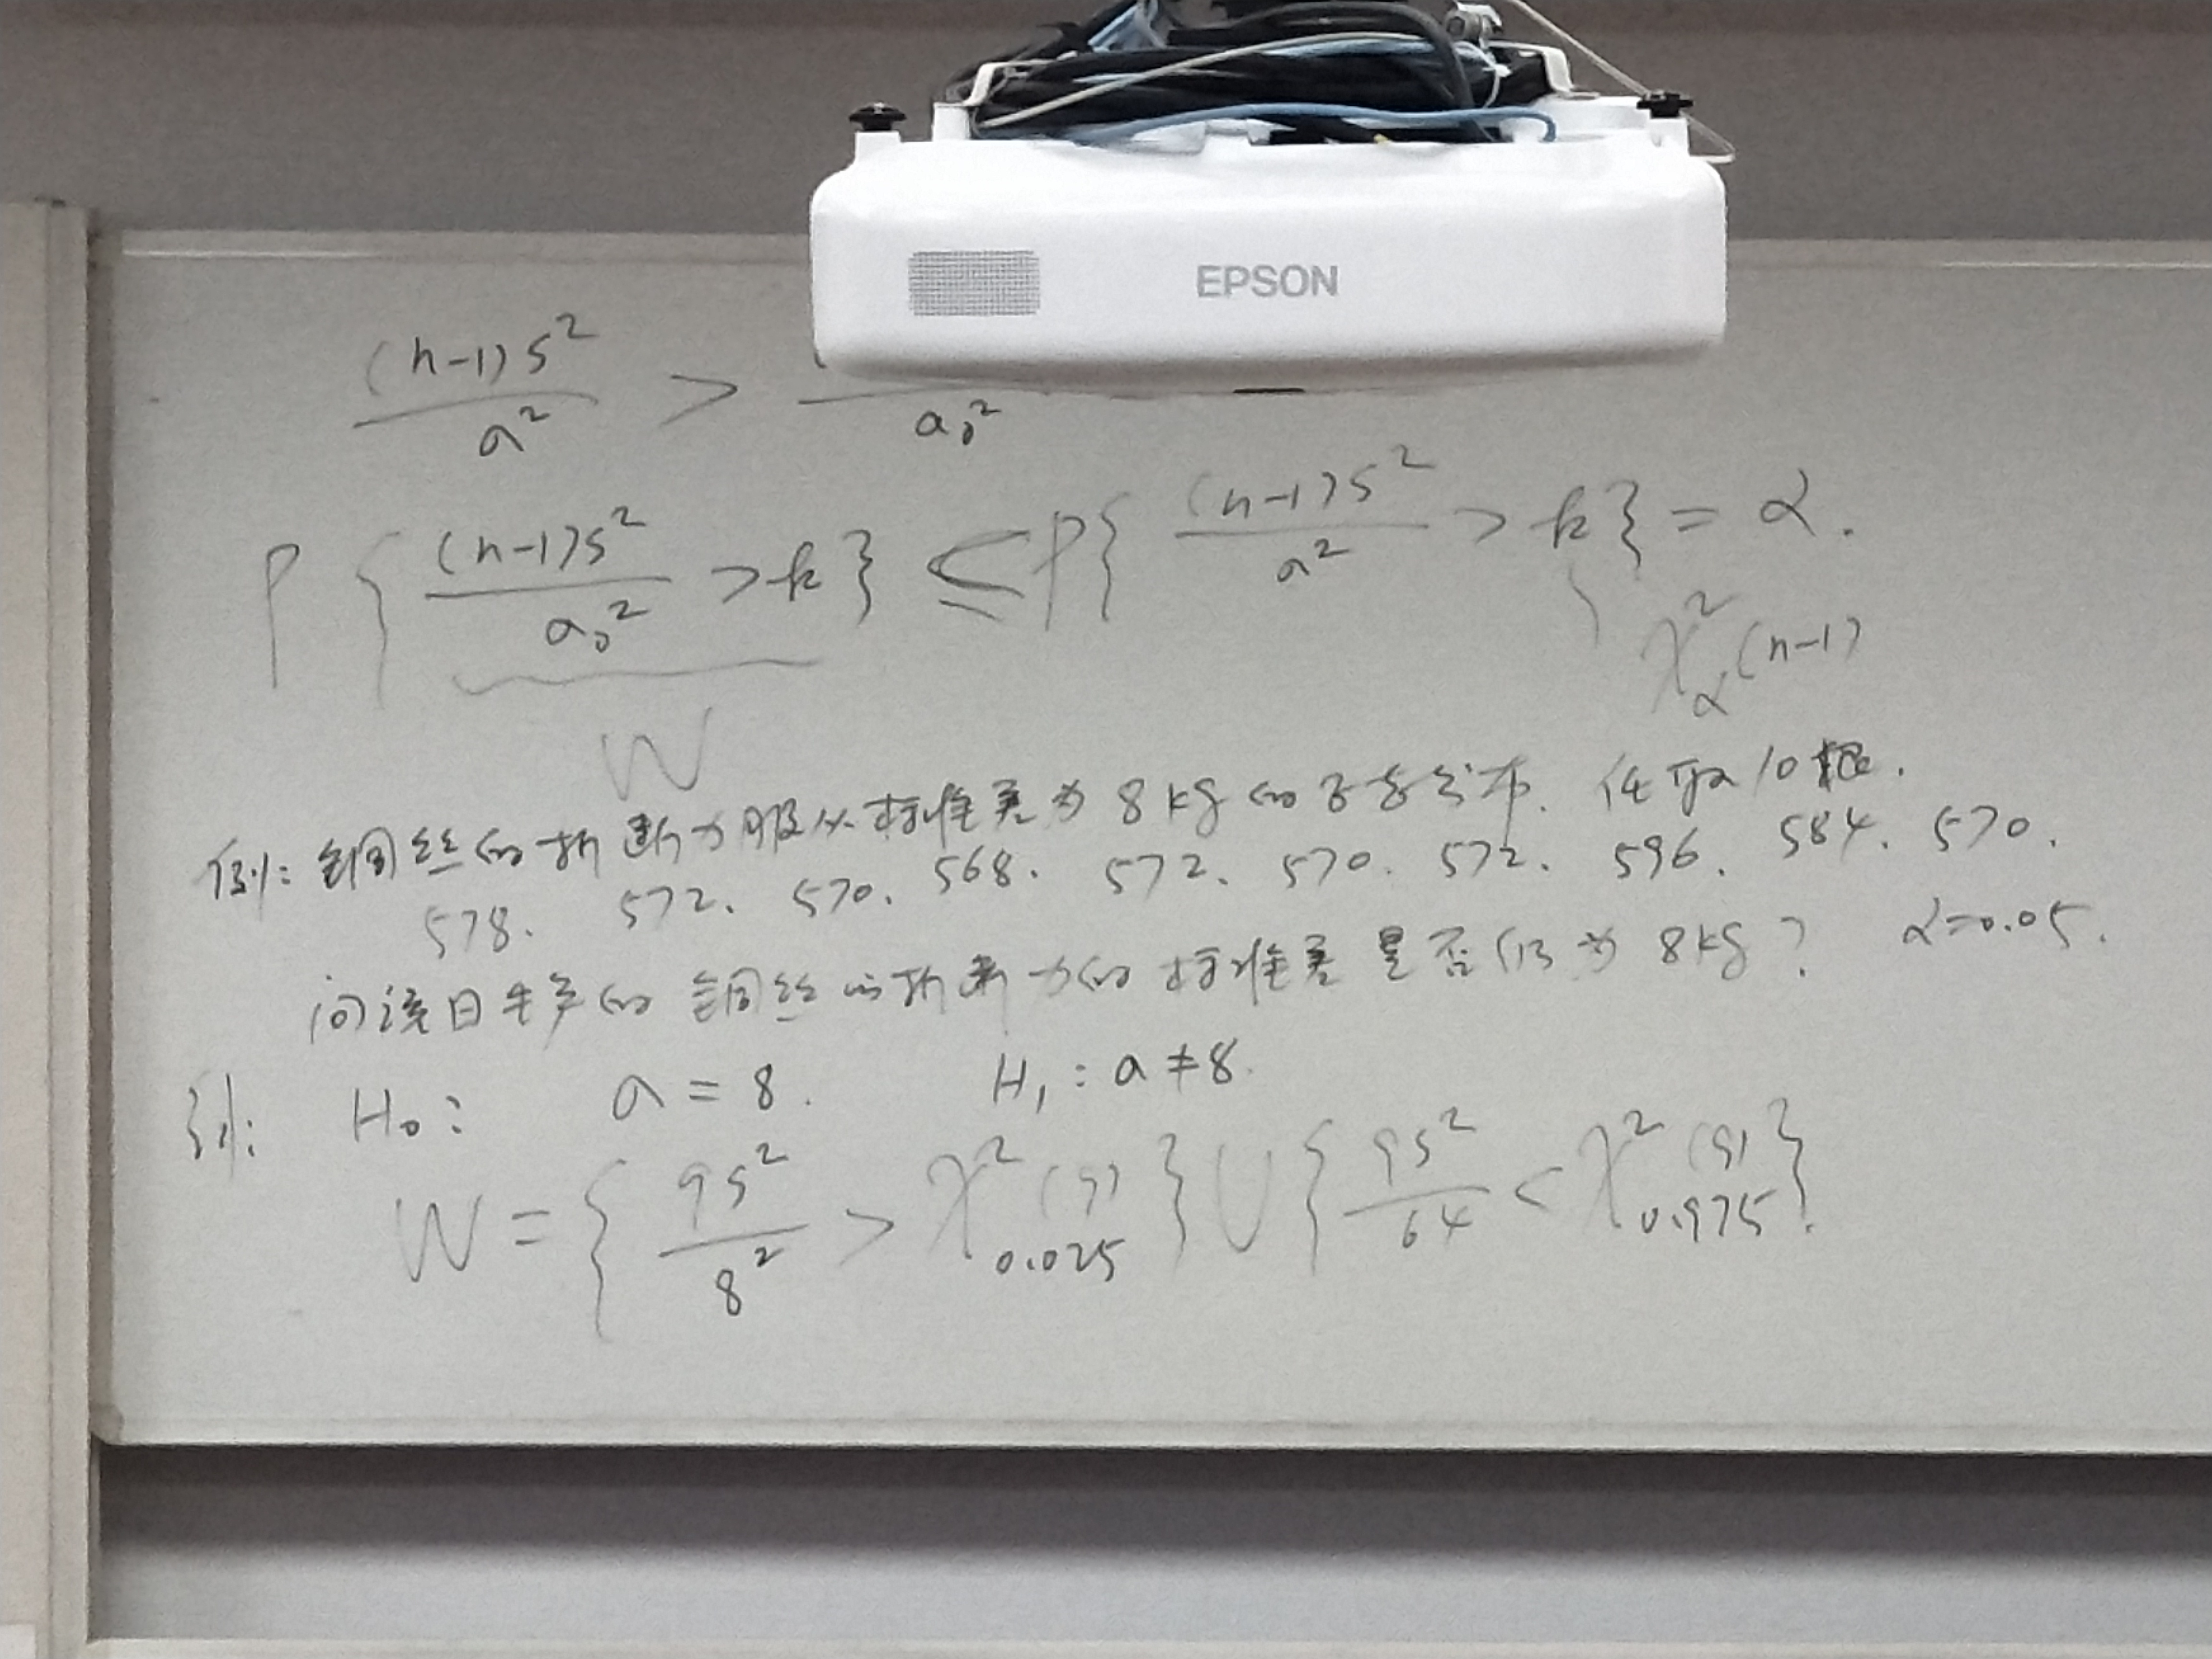 EPSON
(n-1)S² / a² > / a₀²
P{ (n-1)S² / a₀² > k } ≤ P{ (n-1)S² / a² > k } = α.
χ²_α(n-1)
W
例: 铜丝的折断力服从标准差为 8kg 的正态分布. 任取10根.
578. 572. 570. 568. 572. 570. 572. 596. 584. 570.
问该日生产的铜丝的折断力的标准差是否仍为 8kg? α=0.05.
H₀: a = 8. H₁: a ≠ 8.
W = { 9S² / 8² > χ²_0.025(9) } ∪ { 9S² / 64 < χ²_0.975(9) }.